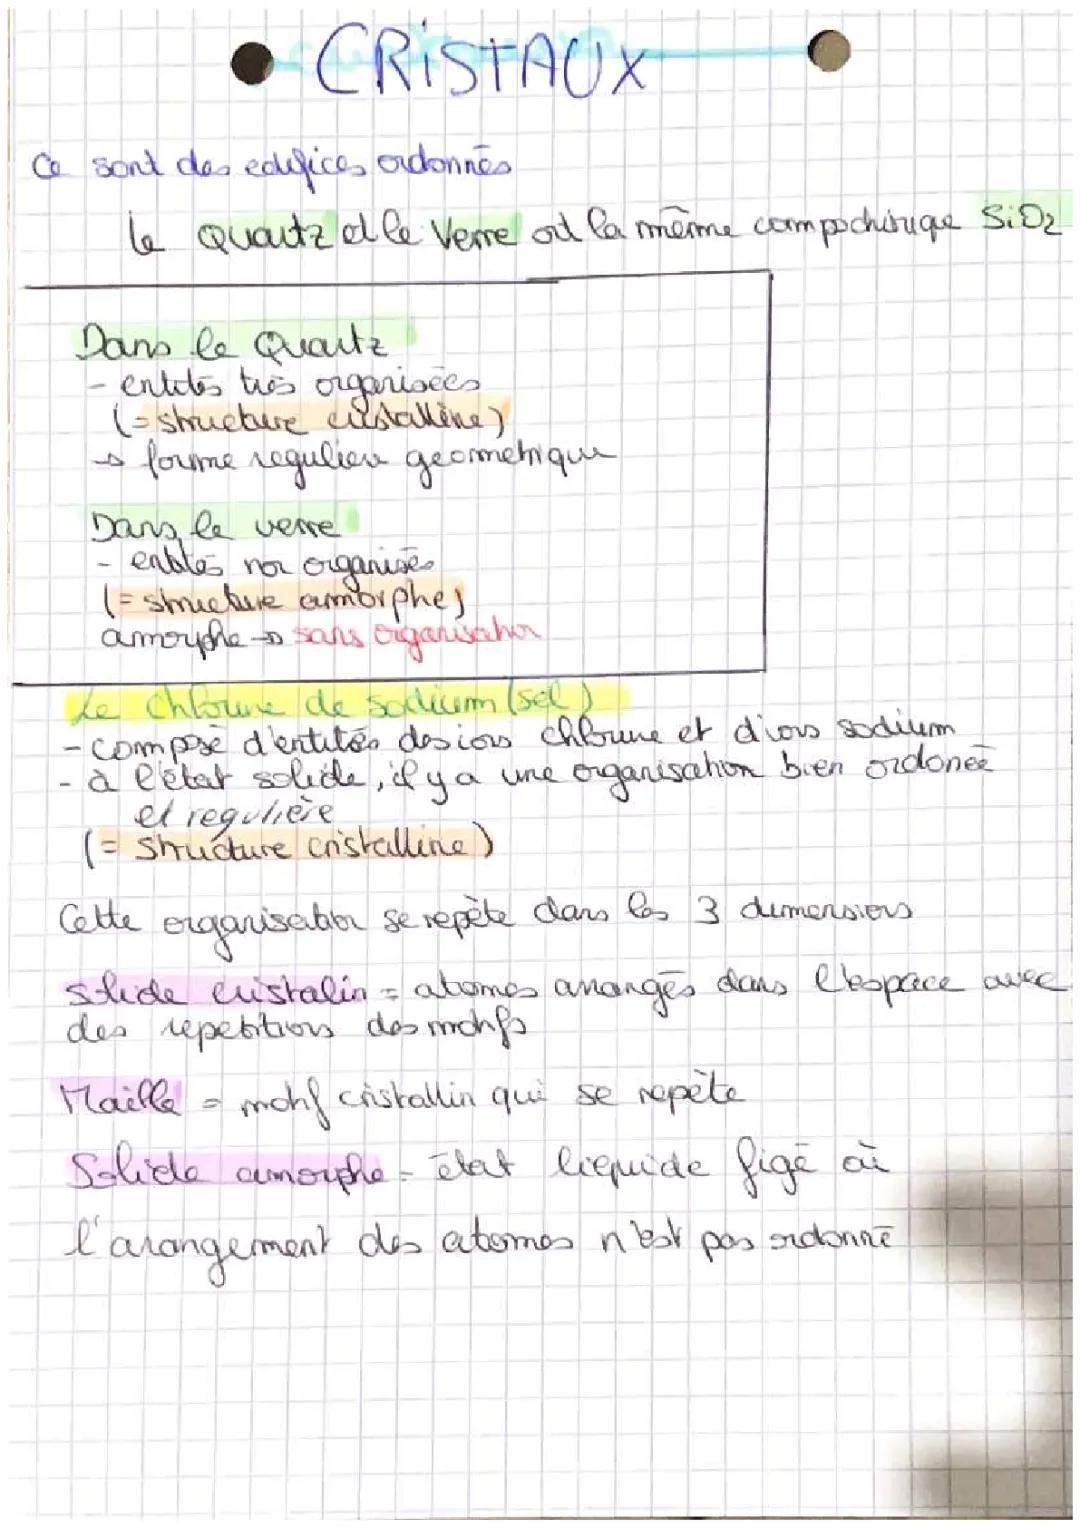 CRiSTAUX
Ce sont des edifices ordonnés
le Quartz et le Verre ont la même compochimique SiO2
Dans le Quartz
- entités très organisées
(= structure cristalline)
→ forme reguliere geometrique
Dans le verre
- entités non organisés
(= structure amorphe)
amorphe → sans organisation
Le chlorure de sodium (sel)
- composé d'entités des ions chlorure et d'ions sodium
- à l'état solide, il y a une organisation bien ordonée
et regulière
(= structure cristalline)
Cette organisation se repète dans les 3 dimensions
solide cristalin = atomes arrangés dans l'espace avec
des repetitions des motifs
Maille = motif cristallin qui se repète
Solide amorphe = état liquide figé où
l'arangement des atomes n'est pas ordonné